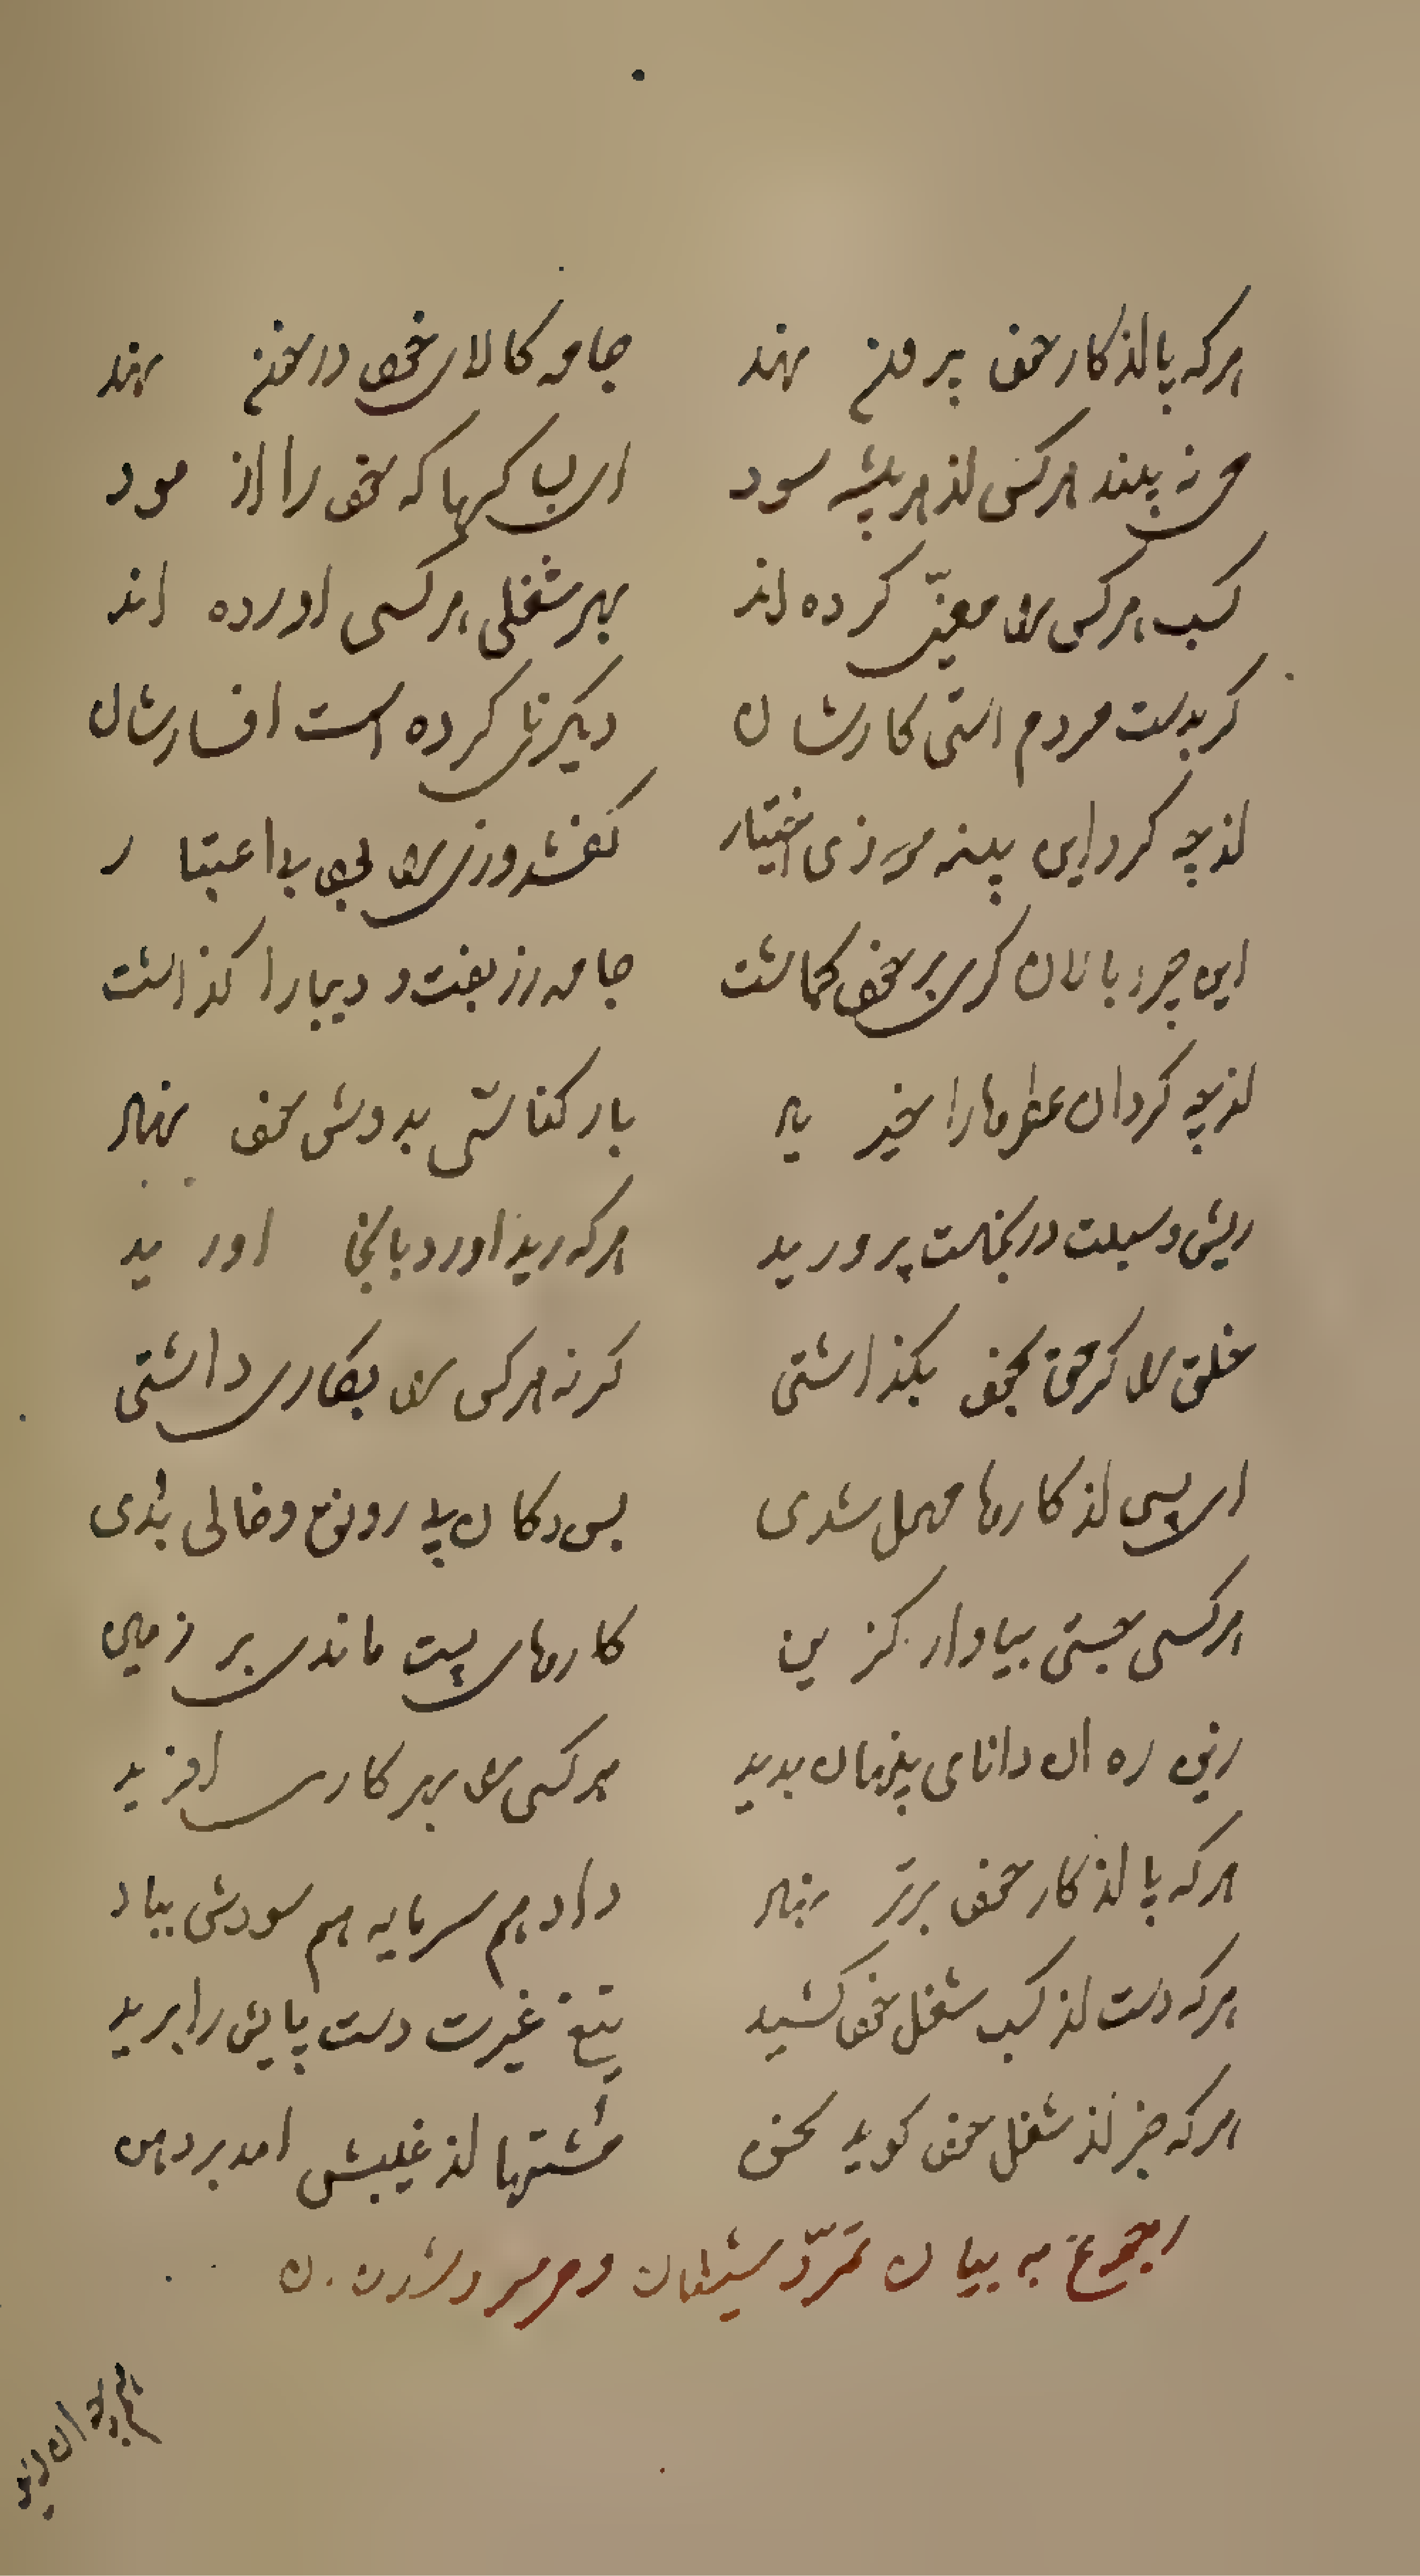 هرکه پا از کار خود برون نهد جامه کالای خود در خون نهد
می نه بیند هرکس از هر پیشه سود ای بسا کسها که خود را از مود
کسب هرکس را معین کرده اند بهر شغلی هر کسی اورده اند
کر بدست مردم استی کارشان دیکری کرده است افسارشان
از چه کرد این پینه دوزی اختیار کفشدوزی را بی اعتبار
این چرا پالان کری بر خود کماشت جامه زربفت و دیبا را کذاشت
از چه کرد ان عطرها را خیر باد بار کناسی بدوش خود نهاد
ریش و سبلت در نجاست پرورید هرکه رید اورد بالخا اورید
خلق را کر حق بخود بکذاشتی کرنه هرکس را بکاری داشتی
ای بسی از کارها مهمل شدی بس دکان بی رونق و خالی بدی
هرکسی جستی بیاوار کزین کارهای پست ماندی بر زمین
زین ره ان دانای پنهان بدید هر کسی را بهر کاری افرید
هرکه پا از کار خود برتر نهاد داد هم سرمایه هم سودش بباد
هرکه دست از کسب شغل خود کشید تیغ غیرت دست پایش را برید
هرکه جز از شغل خود کوید سخن مشتها از غیبش امد بر دهن
رجوع به بیان تمرّد شیطان و مردود شدن ان